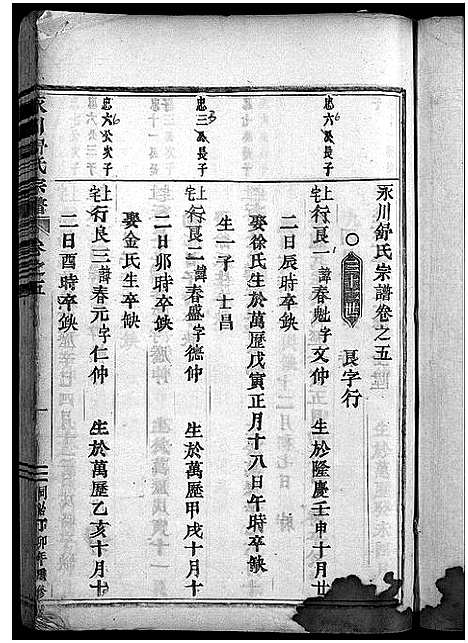 永川舒氏宗譜卷之五
三十世 良字行
忠六公長子
上宅 行良一諱春魁字文仲 生於隆慶壬申十月廿
二日辰時卒缺
娶徐氏生於萬歷戊寅正月十八日午時卒缺
生一子 士昌
忠三公長子
上宅 行良二諱春盛字德仲 生於萬歷甲戌十月十
二日卯時卒缺
娶金氏生卒缺
忠六公次子
上宅 行良三諱春元字仁仲 生於萬歷乙亥十月十
二日酉時卒缺
永川舒氏宗譜 卷之五 一
丁卯年